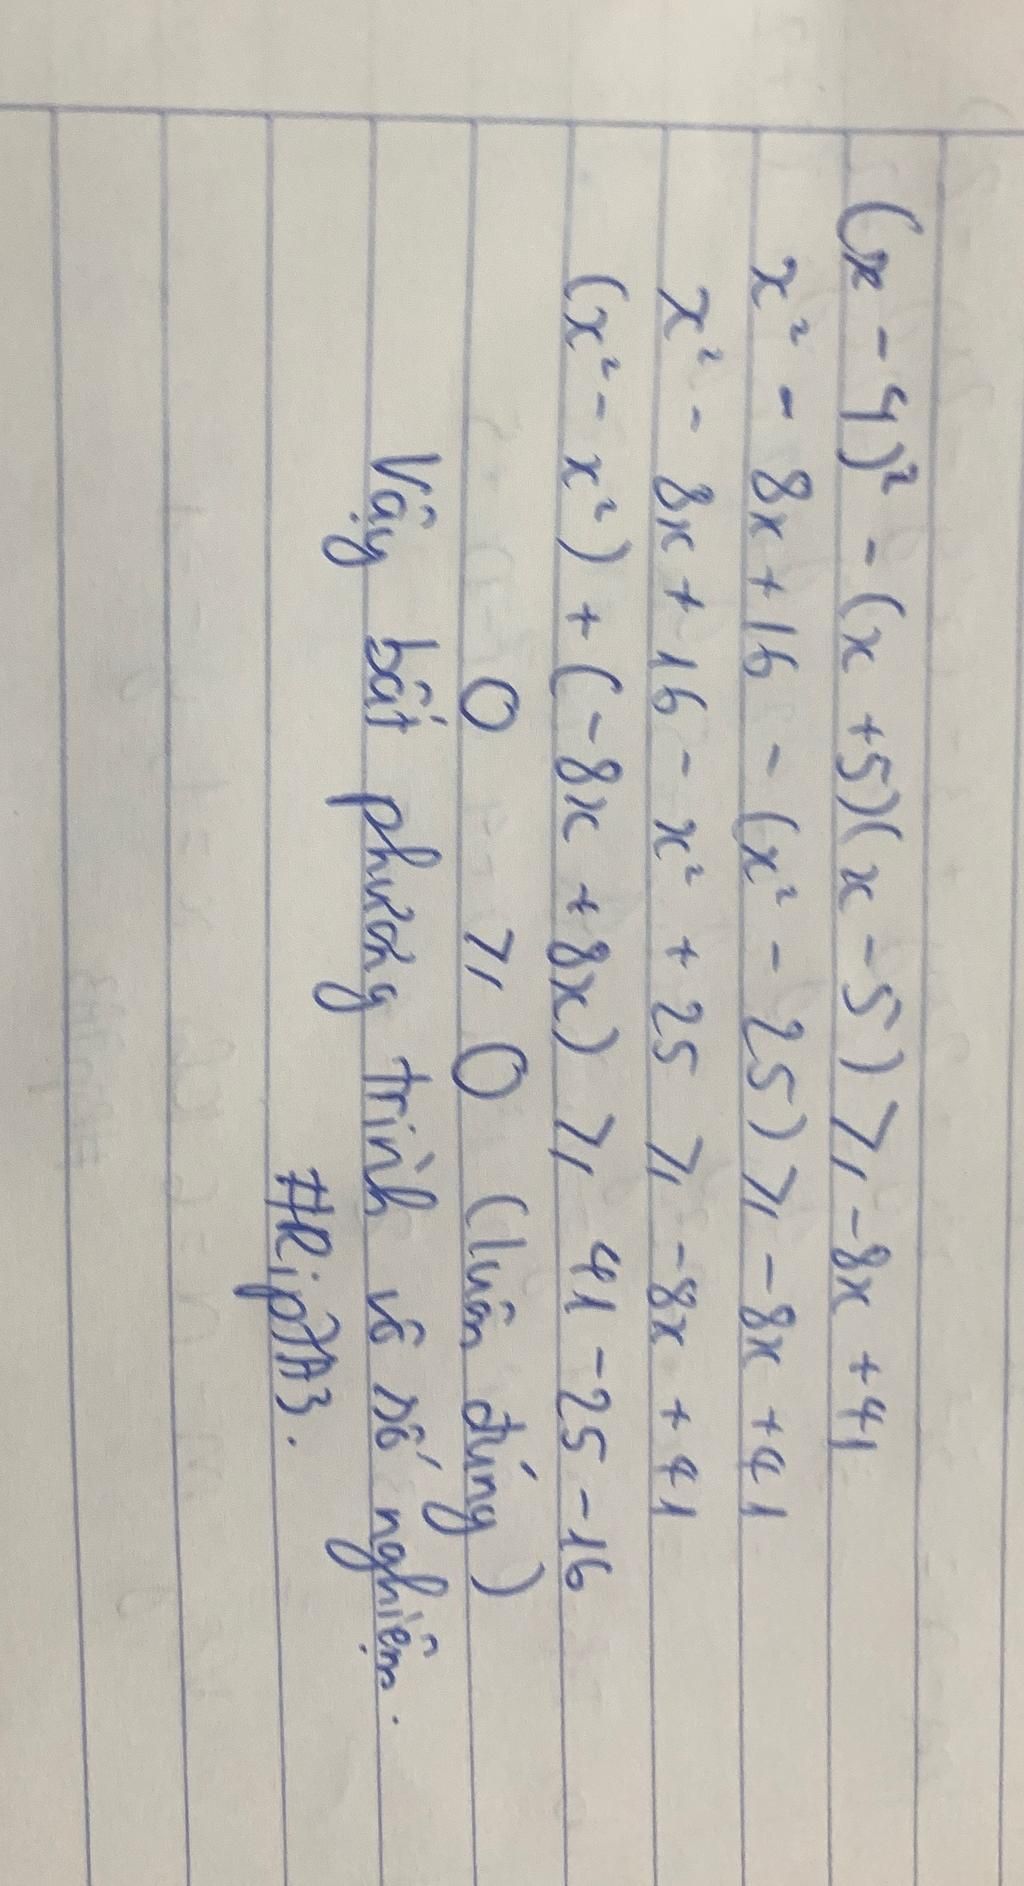 (x - 4)² - (x + 5)(x - 5) ⩾ -8x + 41
x² - 8x + 16 - (x² - 25) ⩾ -8x + 41
x² - 8x + 16 - x² + 25 ⩾ -8x + 41
(x² - x²) + (-8x + 8x) ⩾ 41 - 25 - 16
0 ⩾ 0 (luôn đúng)
Vậy bất phương trình vô số nghiệm.
#RipTA3.